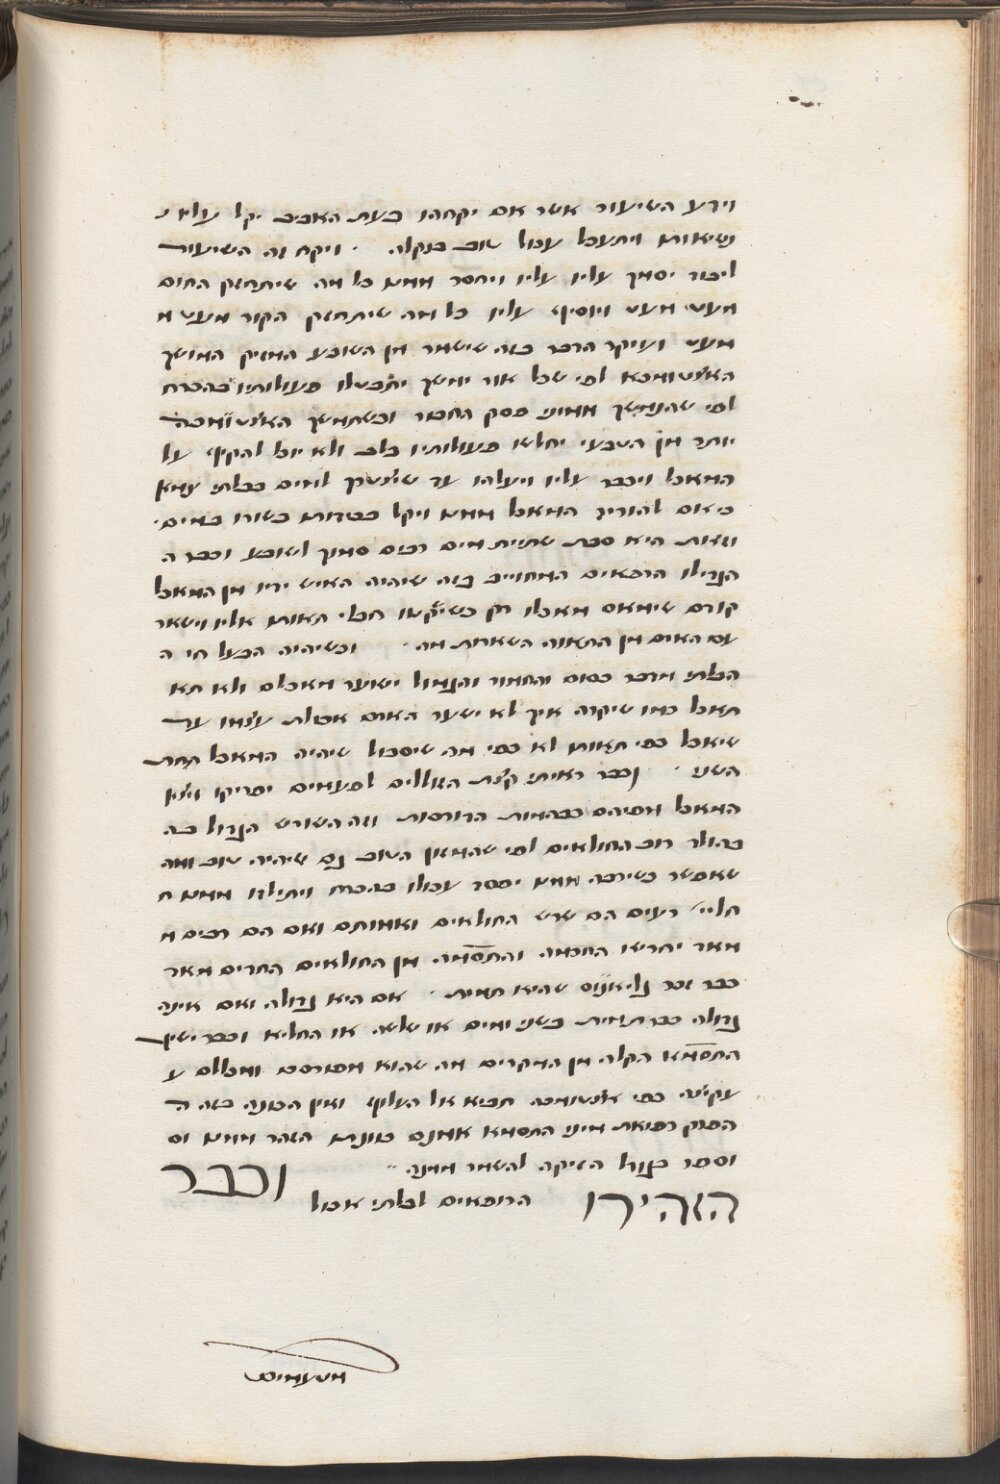 וידע השיעור אשר אם יקחהו בעת האביב יקל עליו
נשיאותו ויתעכל עכול טוב בנקלה · ויקח זה השיעור
ליסוד יסמך עליו עליו ויחסר ממנו כל מה שיתחזק החום
מעט מעט ויוסיף עליו כל מה שיתחזק הקור מעט מ
מעט ועיקר הדבר בזה שישמר מן השובע המזיק המושך
האצטומכא לפי שכל אבר ימשך יתבטלו פעולותיו בהכרח
לפי שהנמשך ממינו פסק החבור וכשתמשך האצטומכה
יותר מן הטבעי יחלשו פעולותיו בלב ולא יוכל להקיף על
המאכל ויכבד עליו ויעלהו עד שיצטרך למים בבלתי צמא
כי אם להוריד המאכל ממנו ויקל כבדותו כשורו במים ·
וזאת היא סבת שתיית מים רבים סמוך לשובע וכבר ה
הגבילו הרופאים המחוייב בזה שיהיה האיש ידיו מן המאכל
קודם שימאס מאכלו רק כשיפסקו חבלי האות אליו וישאר
עם האדם מן התאוה השארות מה · וכשיהיה הבעל חי ה
הבלתי מדבר כסוס והחמור והגמול ישוער מאכלם ולא תא
תאכל כמו שיקרה איך לא ישער האדם אכילת עצמו עד
שיאכל כפי תאותו לא כפי מה שיסבול שיהיה המאכל תחת
השני · וכבר ראיתי קצת הזוללים לפעמים יפריקו ויציאו
המאכל מפיהם כבהמות הדורסות וזה השורש הגדול בה
בהולד רוב החולאים לפי שהמזון הטוב גם שיהיה טוב ומה
שאפשר כשירבה ממנו יפסד עכולו בהכרח ויתילדו ממנו ח
חליי׳ רעים הם שרש החולאים ואמותם ואם הם רבים מ
מאד יחדשו החכמה והתסמה מן החולאים החדים מאד
כבר זכר גליאנוס שהיא תמית · אם היא גדולה ואם אינה
גדולה כבר תמית בשני ימים או שלשה או החליא וכבר ישיג
התסמא הקלה מן המקרים מה שהוא מפורסם ומכלם ע
עקיצה בפי אצטומכה תביא אל העלוף ואין הכונה בזה ה
הפרק רפואת מיני התסמא אמנם כונתי הזהר ממנו וס
וספר כגודל הזיקה להשמר ממנה ··
וכבר
הזהירו הרופאים לבלתי אכול
מטעמים